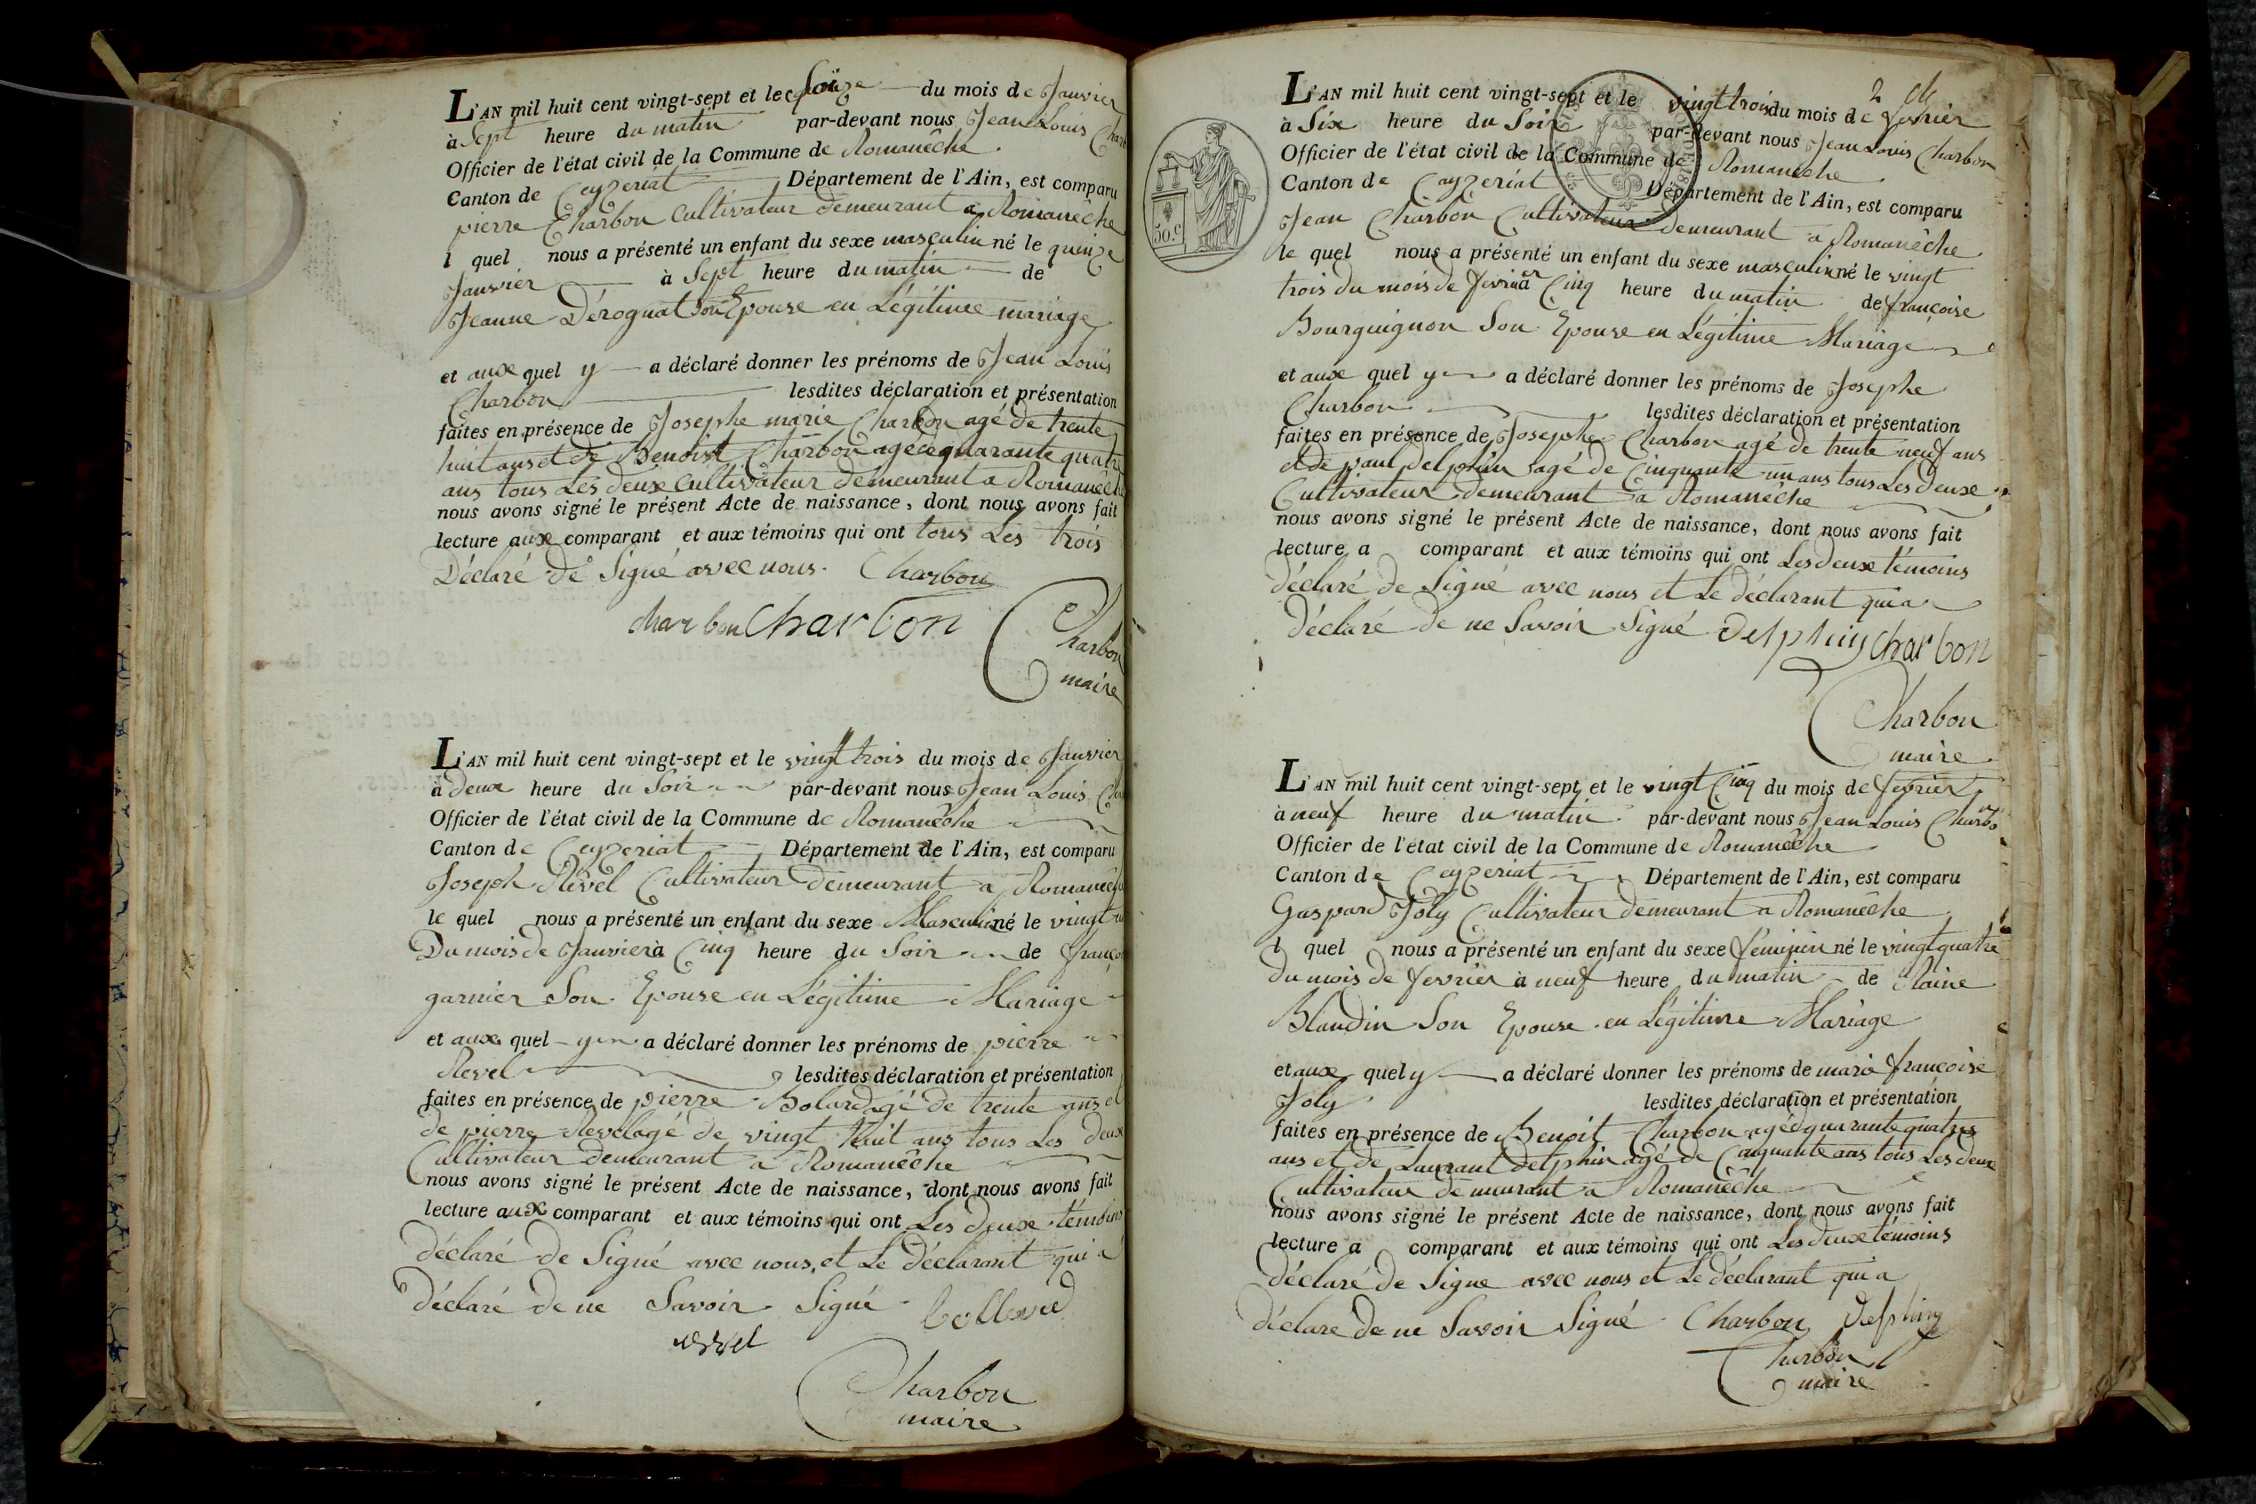 L'AN mil huit cent vingt-sept et le Seize du mois de Janvier
à Sept heure du matin par-devant nous Jean Louis Charb
Officier de l'état civil de la Commune de Romanêche
Canton de Ceyzeriat Département de l'Ain, est comparu
pierre Charbon Cultivateur demeurant a Romanêche
l quel nous a présenté un enfant du sexe masculin né le quinze
Janvier à Sept heure du matin de
Jeanne Dérognat Son Epouse en Légitime mariage
et aux quel y a déclaré donner les prénoms de Jean Louis
Charbon lesdites déclaration et présentation
faites en présence de Josephe marie Charbon agé de trente
huit ans et de Benoist Charbon agé de quarante quatre
ans tous Les deux Cultivateur demeurant a Romanêche
nous avons signé le présent Acte de naissance, dont nous avons fait
lecture aux comparant et aux témoins qui ont tous Les trois
Déclaré de Signé avec nous. Charbon
charbon charbon
Charbon
maire
L'AN mil huit cent vingt-sept et le vingt trois du mois de Janvier
à deux heure du Soir par-devant nous Jean Louis Cha
Officier de l'état civil de la Commune de Romanêche
Canton de Ceyzeriat Département de l'Ain, est comparu
Joseph Revel Cultivateur demeurant a Romanêche
le quel nous a présenté un enfant du sexe Masculin né le vingt
Du mois de Janvier à Cinq heure du Soir de françoi
garnier Son Epouse en Légitime Mariage
et aux quel y a déclaré donner les prénoms de pierre
Revel lesdites déclaration et présentation
faites en présence de pierre Bolard agé de trente ans et
de pierre Revel agé de vingt huit ans tous Les deux
Cultivateur demeurant a Romanêche
nous avons signé le présent Acte de naissance, dont nous avons fait
lecture aux comparant et aux témoins qui ont Les deux témoins
déclaré de Signé avec nous, et Le déclarant qui a
Déclaré de ne Savoir Signé
revel
Charbon
maire
2 
L'AN mil huit cent vingt-sept et le vingt trois du mois de fevrier
à Six heure du Soir par-devant nous Jean Louis Charbon
Officier de l'état civil de la Commune de Romanêche
Canton de Cayzeriat Département de l'Ain, est comparu
50.C
Jean Charbon Cultivateur demeurant a Romanêche
le quel nous a présenté un enfant du sexe masculin né le vingt
trois du mois de fevrier à Cinq heure du matin de françoise
Bourguignon Son Epouse en Légitime Mariage
et aux quel y a déclaré donner les prénoms de Josephe
Charbon lesdites déclaration et présentation
faites en présence de Josephe Charbon agé de trente neuf ans
et de paul delphin agé de Cinquante un ans tous Les deux
Cultivateur demeurant a Romanêche
nous avons signé le présent Acte de naissance, dont nous avons fait
lecture a comparant et aux témoins qui ont Les deux témoins
déclaré de Signé avec nous et Le déclarant qui a
déclaré de ne Savoir Signé Delphin charbon
Charbon
maire
L'AN mil huit cent vingt-sept et le vingt Cinq du mois de fevrier
à neuf heure du matin par-devant nous Jean Louis Charbon
Officier de l'état civil de la Commune de Romanêche
Canton de Ceyzeriat Département de l'Ain, est comparu
Gaspard Joly Cultivateur demeurant a Romanêche
l quel nous a présenté un enfant du sexe féminin né le vingt quatre
du mois de fevrier à neuf heure du matin de Raine
Blandin Son Epouse en Légitime Mariage
et aux quel y a déclaré donner les prénoms de marie françoise
Joly lesdites déclaration et présentation
faites en présence de Benoit Charbon agé de quarante quatre
ans et de Laurant delphin agé de Cinquante ans tous Les deux
Cultivateur demeurant a Romanêche
nous avons signé le présent Acte de naissance, dont nous avons fait
lecture a comparant et aux témoins qui ont Les deux témoins
déclaré de Signe avec nous et Le déclarant qui a
déclare de ne Savoir Signé Charbon Delphin
Charbon
maire